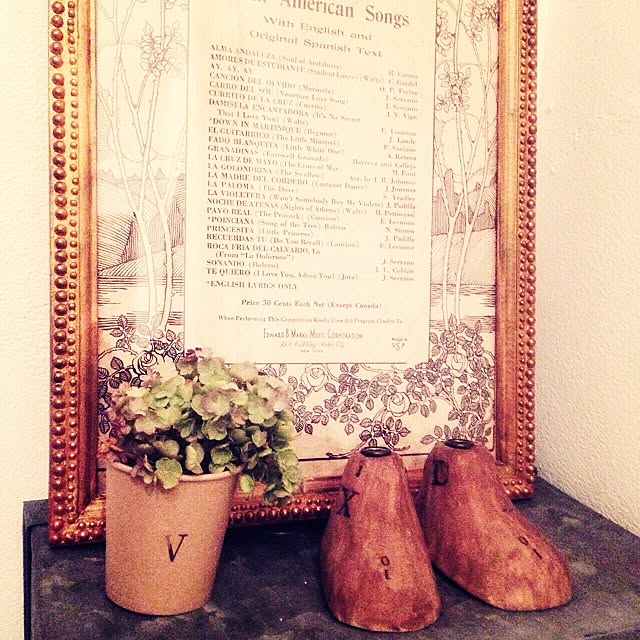 American Songs
With English and
Original Spanish Text
ALMA ANDALUZA (Soul of Andalucia)
AMORES DE ESTUDIANTE (Student Loves) (Waltz) C. Gardel
AY, AY, AY O. P. Freire
CANCION DEL OLVIDO (Marinela) J. Serrano
CARRO DEL SOL (Venetian Love Song) J. Serrano
CURRITO DE LA CRUZ
DAMISELA ENCANTADORA (It's No Secret
That I Love You) (Waltz) E. Lecuona
*DOWN IN MARTINIQUE (Beguine)
EL GUITARRICO (The Little Minstrel)
FADO BLANQUITA (Little White One)
GRANADINAS (Farewell Granada)
LA CRUZ DE MAYO (The Cross of May)
LA GOLONDRINA (The Swallow)
LA MADRE DEL CORDERO Arr. by J. R. Johnson
LA PALOMA (The Dove) S. Yradier
LA VIOLETERA (Won't Somebody Buy My Violets) J. Padilla
NOCHE DE ATENAS (Nights of Athens) (Waltz)
PAVO REAL (The Peacock) (Cancion) E. Lecuona
*POINCIANA (Song of the Tree) Bolero N. Simon
PRINCESITA (Little Princess) J. Padilla
RECUERDAS TU (Do You Recall) (Cancion) E. Lecuona
ROCA FRIA DEL CALVARIO, La
(From "La Dolorosa") J. Serrano
SONANDO (Bolero)
TE QUIERO (I Love You, Adore You) (Jota) J. Serrano
*ENGLISH LYRICS ONLY
Price 50 Cents Each Net (Except Canada)
When Performing This Composition Kindly Give All Program Credits To
EDWARD B. MARKS MUSIC CORPORATION
RCA Building Radio City
NEW YORK
MADE IN
U.S.A.
V
X
D